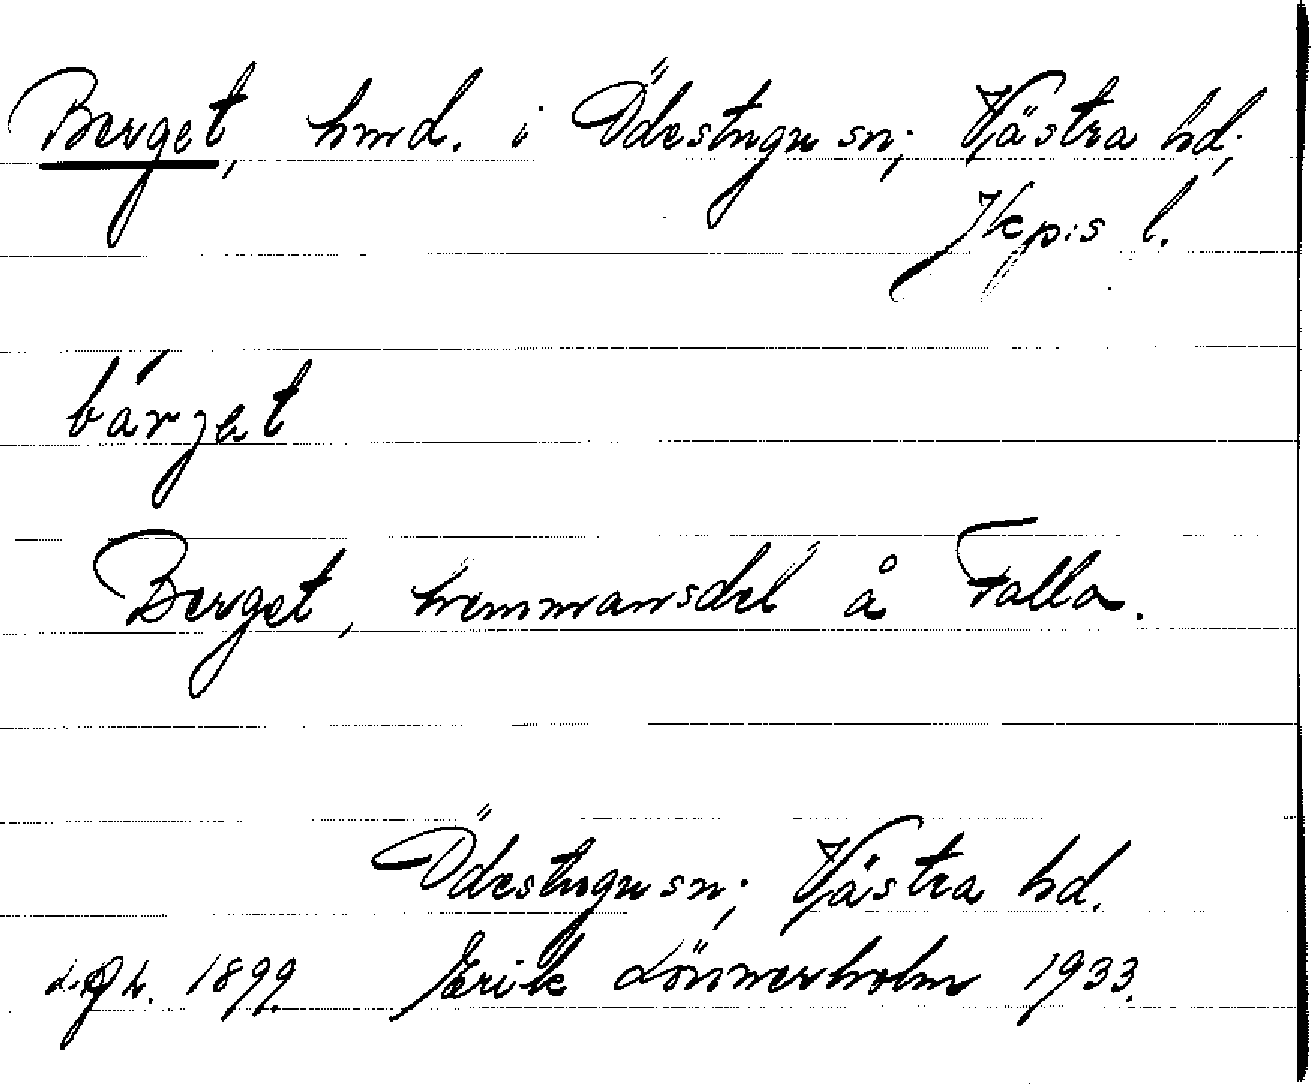 Berget, hmd. i Ödestugu sn; Västra hd;
Jkp:s l.
bárjet
Berget, hemmansdel å Falla.
Ödestugu sn; Västra hd.
1899. Erik Lönnerholm 1933.